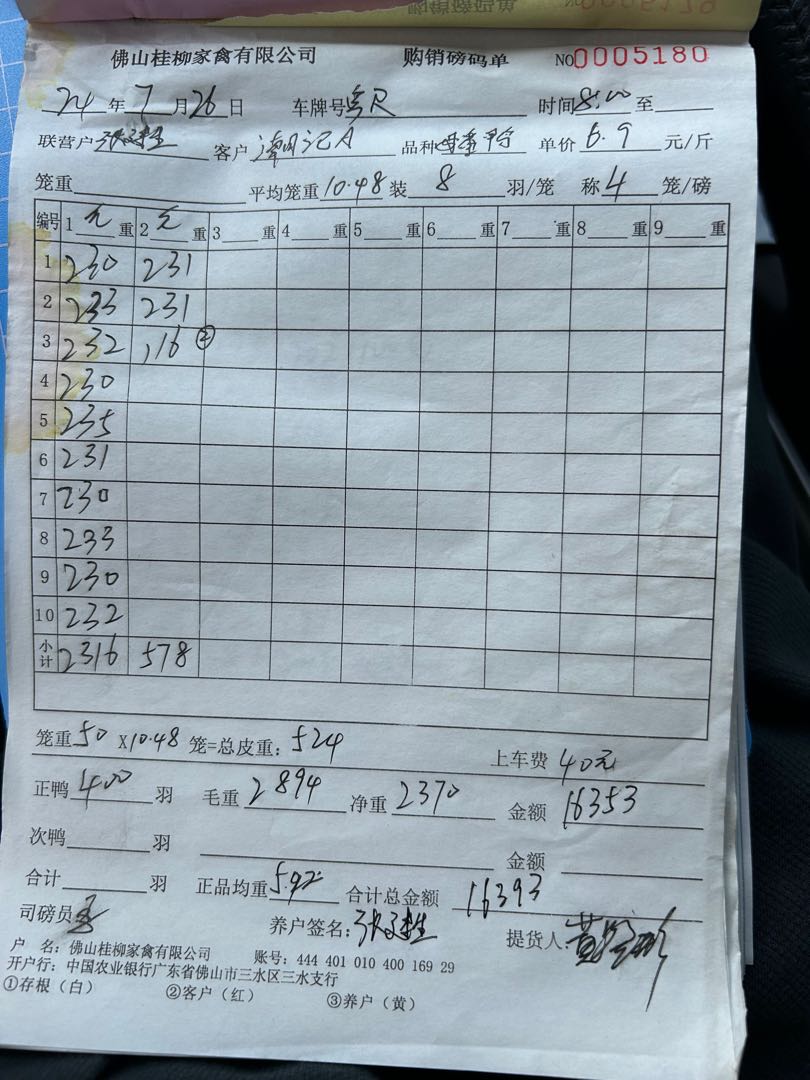 佛山桂柳家禽有限公司 购销磅码单 NO0005180
24年7月26日 车牌号 时间8:00至
联营户 客户 潭记A 品种 单价6.9元/斤
笼重 平均笼重10.48装8羽/笼 称4笼/磅
编号 1元重 2元重 3重 4重 5重 6重 7重 8重 9重
1 230 231
2 233 231
3 232 116 ②
4 230
5 235
6 231
7 230
8 233
9 230
10 232
小计 2316 578
笼重50X10.48笼=总皮重:524 上车费40元
正鸭400羽 毛重2894净重2370 金额16353
次鸭羽 金额
合计羽 正品均重5.92 合计总金额16393
司磅员 养户签名: 提货人
户 名:佛山桂柳家禽有限公司 账号:444 401 010 400 169 29
开户行:中国农业银行广东省佛山市三水区三水支行
①存根(白) ②客户(红) ③养户(黄)